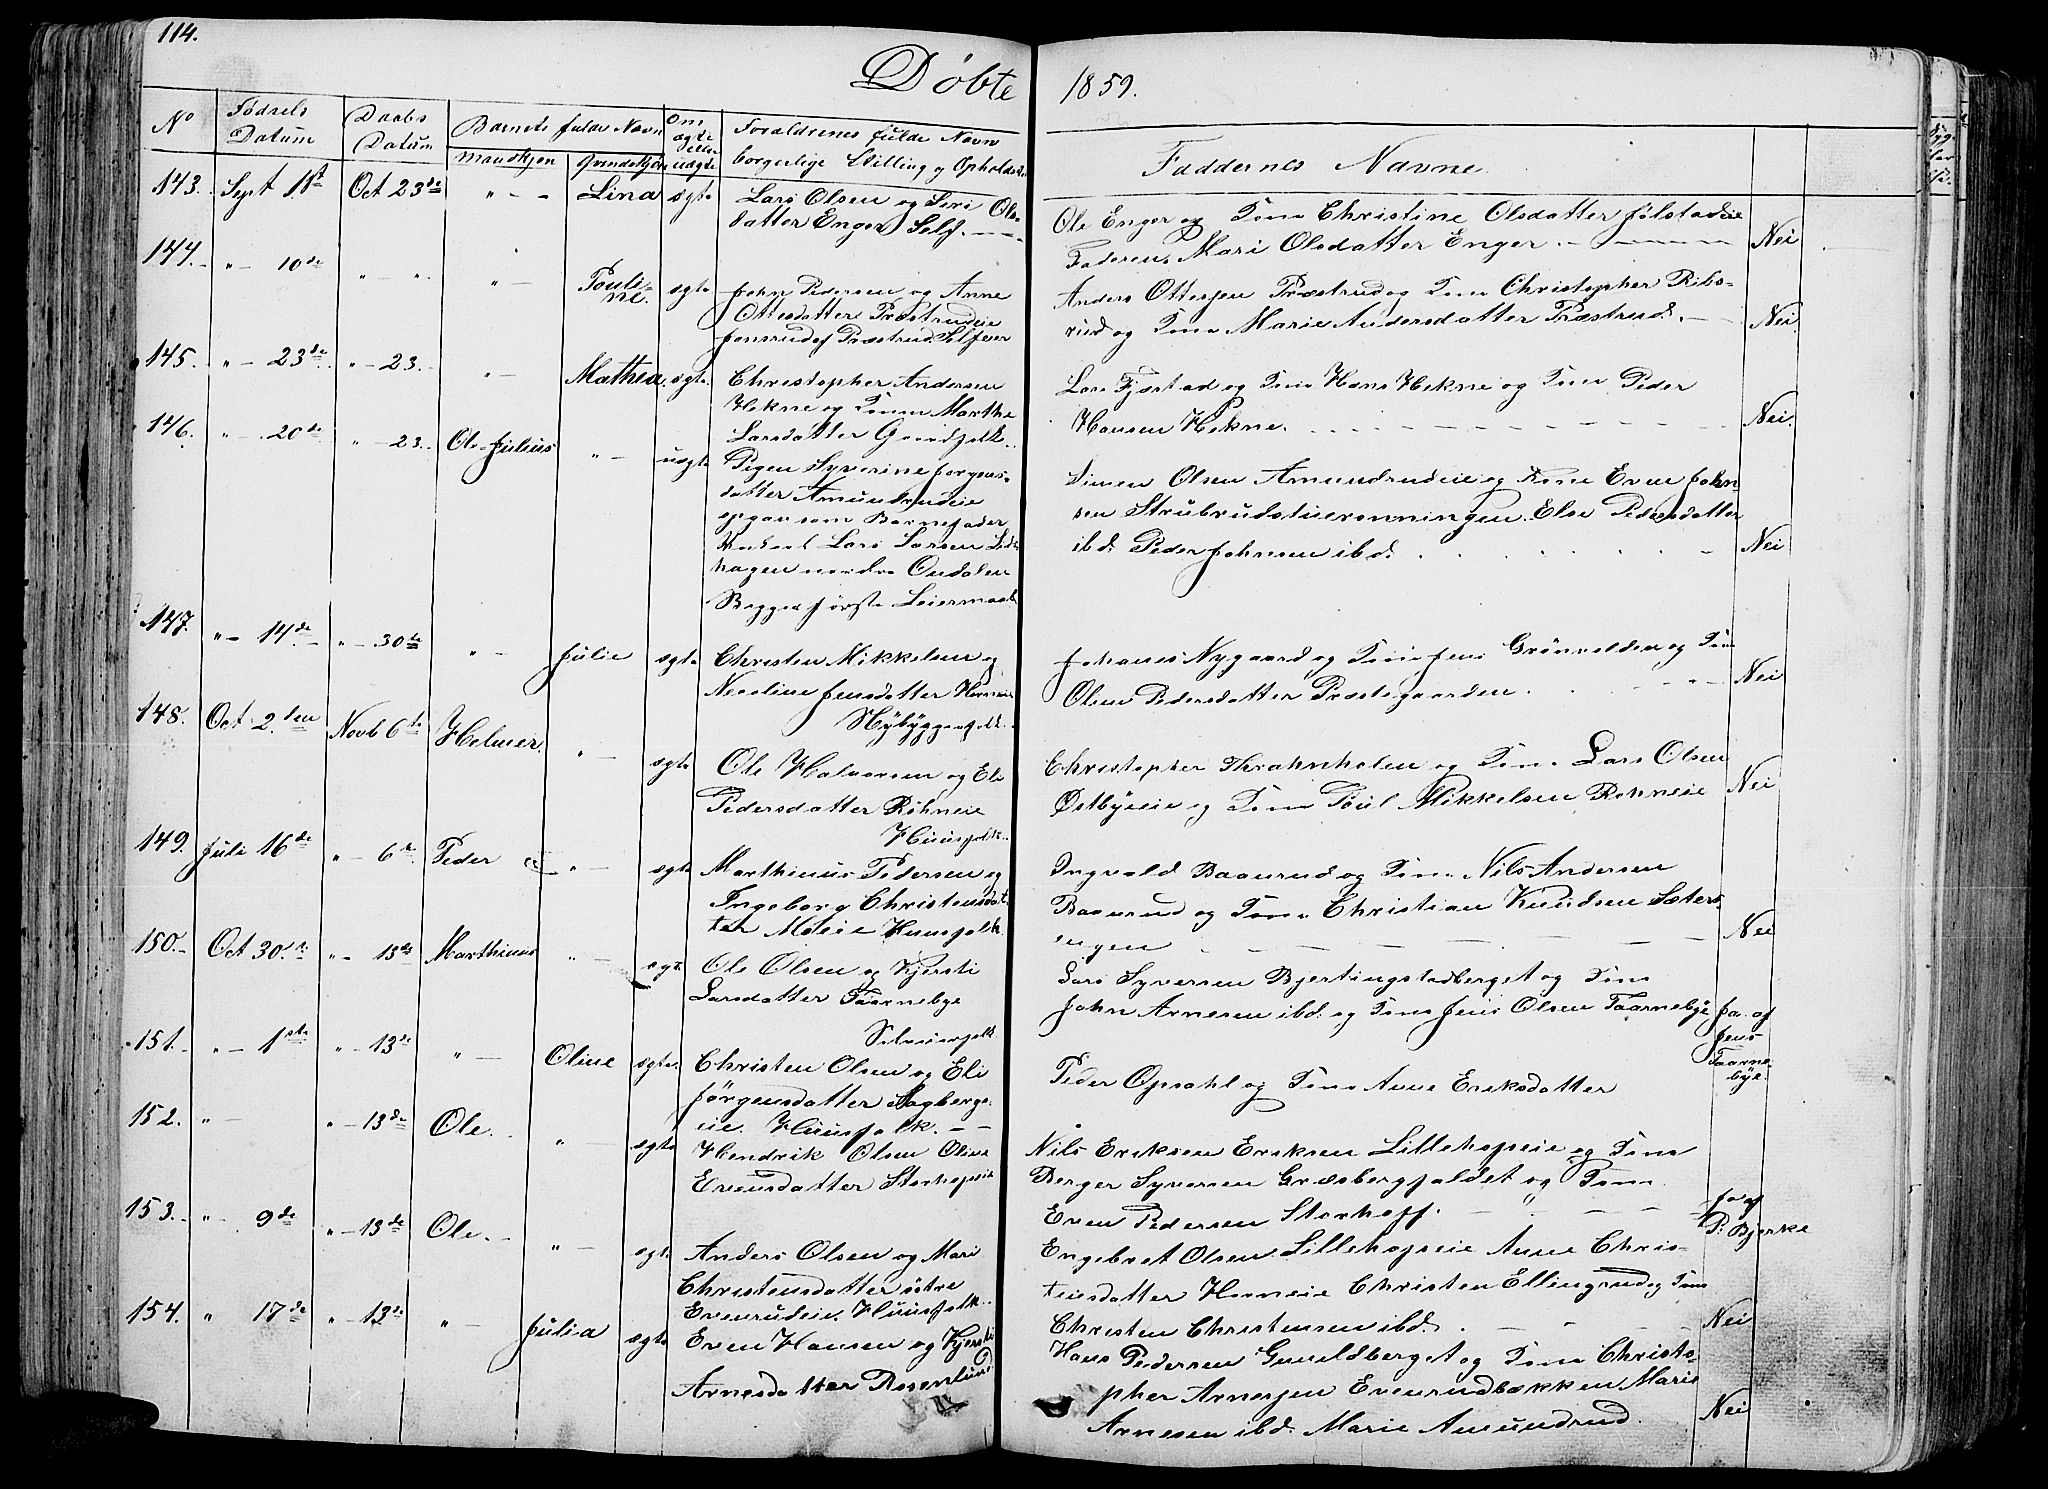 114.
Døbte 1859.
No
Fødsels Datum
Daabs Datum
Barnets fulde Navn
Mandkjøn
Qvindekjøn
Om ægte eller uægte
Forældrenes fulde Navn
borgerlige Stilling og Opholdst.
Faddernes Navne.
143. Sept 18t Oct 23de " - - Lina ægte Lars Olsen og Siri Ols-
datter Enger Self.
Ole Enger og Kone Christine Olsdatter Julstadeie
Faderen. Mari Olsdatter Enger. - Nei
144. " - 10de " - " " - Pouli-
ne. ægte John Pedersen og Anne
Ottesdatter Præstrudeie
Jonsrud af Præstrud Selfeier
Anders Ottersen Præstrud og Kone Christopher Ribs-
rud og Kone Marie Andersdatter Præstrud. - Nei
145. " - 23de " - 23. " - Mathea ægte Christopher Andersen
Hekne og Kone Marthe
Larsdatter Gaardfolk.
Lars Fjæstad og Kone Hans Hekne og Kone Peder
Hansen Hekne. Nei.
146. " - 20de " - 23. Ole Julius " - uægte Pigen Syverine Jørgens-
datter Amundrudeie
opgav som Barnefader
Ungkarl Lars Larsen
hagen nordre Ondalen
Begges første Leiermaal
Simen Olsen Amundrudeie og Kone Even John-
sen Strubrudstuerønningen. Else Pedersdatter
ibd. Peder Johnsen ibd. Nei
147. " - 14de " - 30te " - Julie ægte Christen Mikkelsen og
Nicoline Jensdatter Horneie
Nybyggerfolk.
Johanes Nygaard og Kone Jens Grønvolden og Kone
Oline Pedersdatter Præstegaarden. Nei
148. Oct 2den Novb 6te Helmer. " - ægte Ole Halvorsen og Eli
Pedersdatter Røhneie
Huusfolk.
Christopher Thrahnholen og Kone Lars Olsen
Østbyeie og Kone Poul Mikkelsen Rohneie Nei
149. Juli 16de " - 6te Peder " - ægte Marthinus Pedersen og
Ingeborg Christensdat-
ter Moeie Huusfolk
Ingvald Baarud og Kone Nils Andersen
Baarud og Kone Christian Knudsen Sæters-
engen Nei
150. Oct 30te " - 13de Marthinus " - ægte Ole Olsen og Kjersti
Larsdatter Taarnebye
Selveierfolk
Lars Syversen Bjertingstadberget og Kone
John Arnesen ibd. og Kone Jens Olsen Taarnebye Ja af
Jens
Taarne-
bye.
151. " - 1ste " - 13de " - Oline ægte Christen Olsen og Eli
Jørgensdatter Aagbergs-
eie. Huusfolk. - -
Peder Opsahl og Kone Anne Eriksdatter
152. " - " - 13de Ole. " - ægte Hendrik Olsen Oline
Evensdatter Storhofseie
Nils Eriksen Eriksen Lillehofseie og Kone
Berger Syversen Græsbergfaldet og Kone
Even Pedersen Storhoff. Ja af
P. Bjerke
153. " - 9de " - 13de Ole. " - ægte Anders Olsen og Mari
Christensdatter østre
Evenrudeie. Huusfolk.
Engebret Olsen Lillehofseie Anne Chris-
tensdatter Horneie Christen Ellingrud og Kone
Christen Christensen ibd. Nei
154. " 17de " - 13de " - Julia ægte Even Hansen og Kjersti
Arnesdatter Rosenlund
Hans Pedersen Gunildberget og Kone Christo-
pher Arnesen Evenrudbækken Marie
Arnesen ibd. Marie Amundrud. Nei